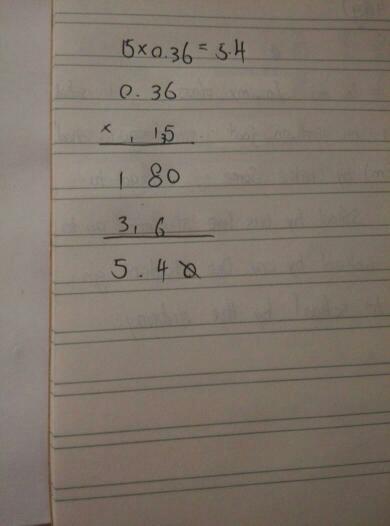 15×0.36 = 5.4
0.36
× 15
1 80
3, 6
5.40